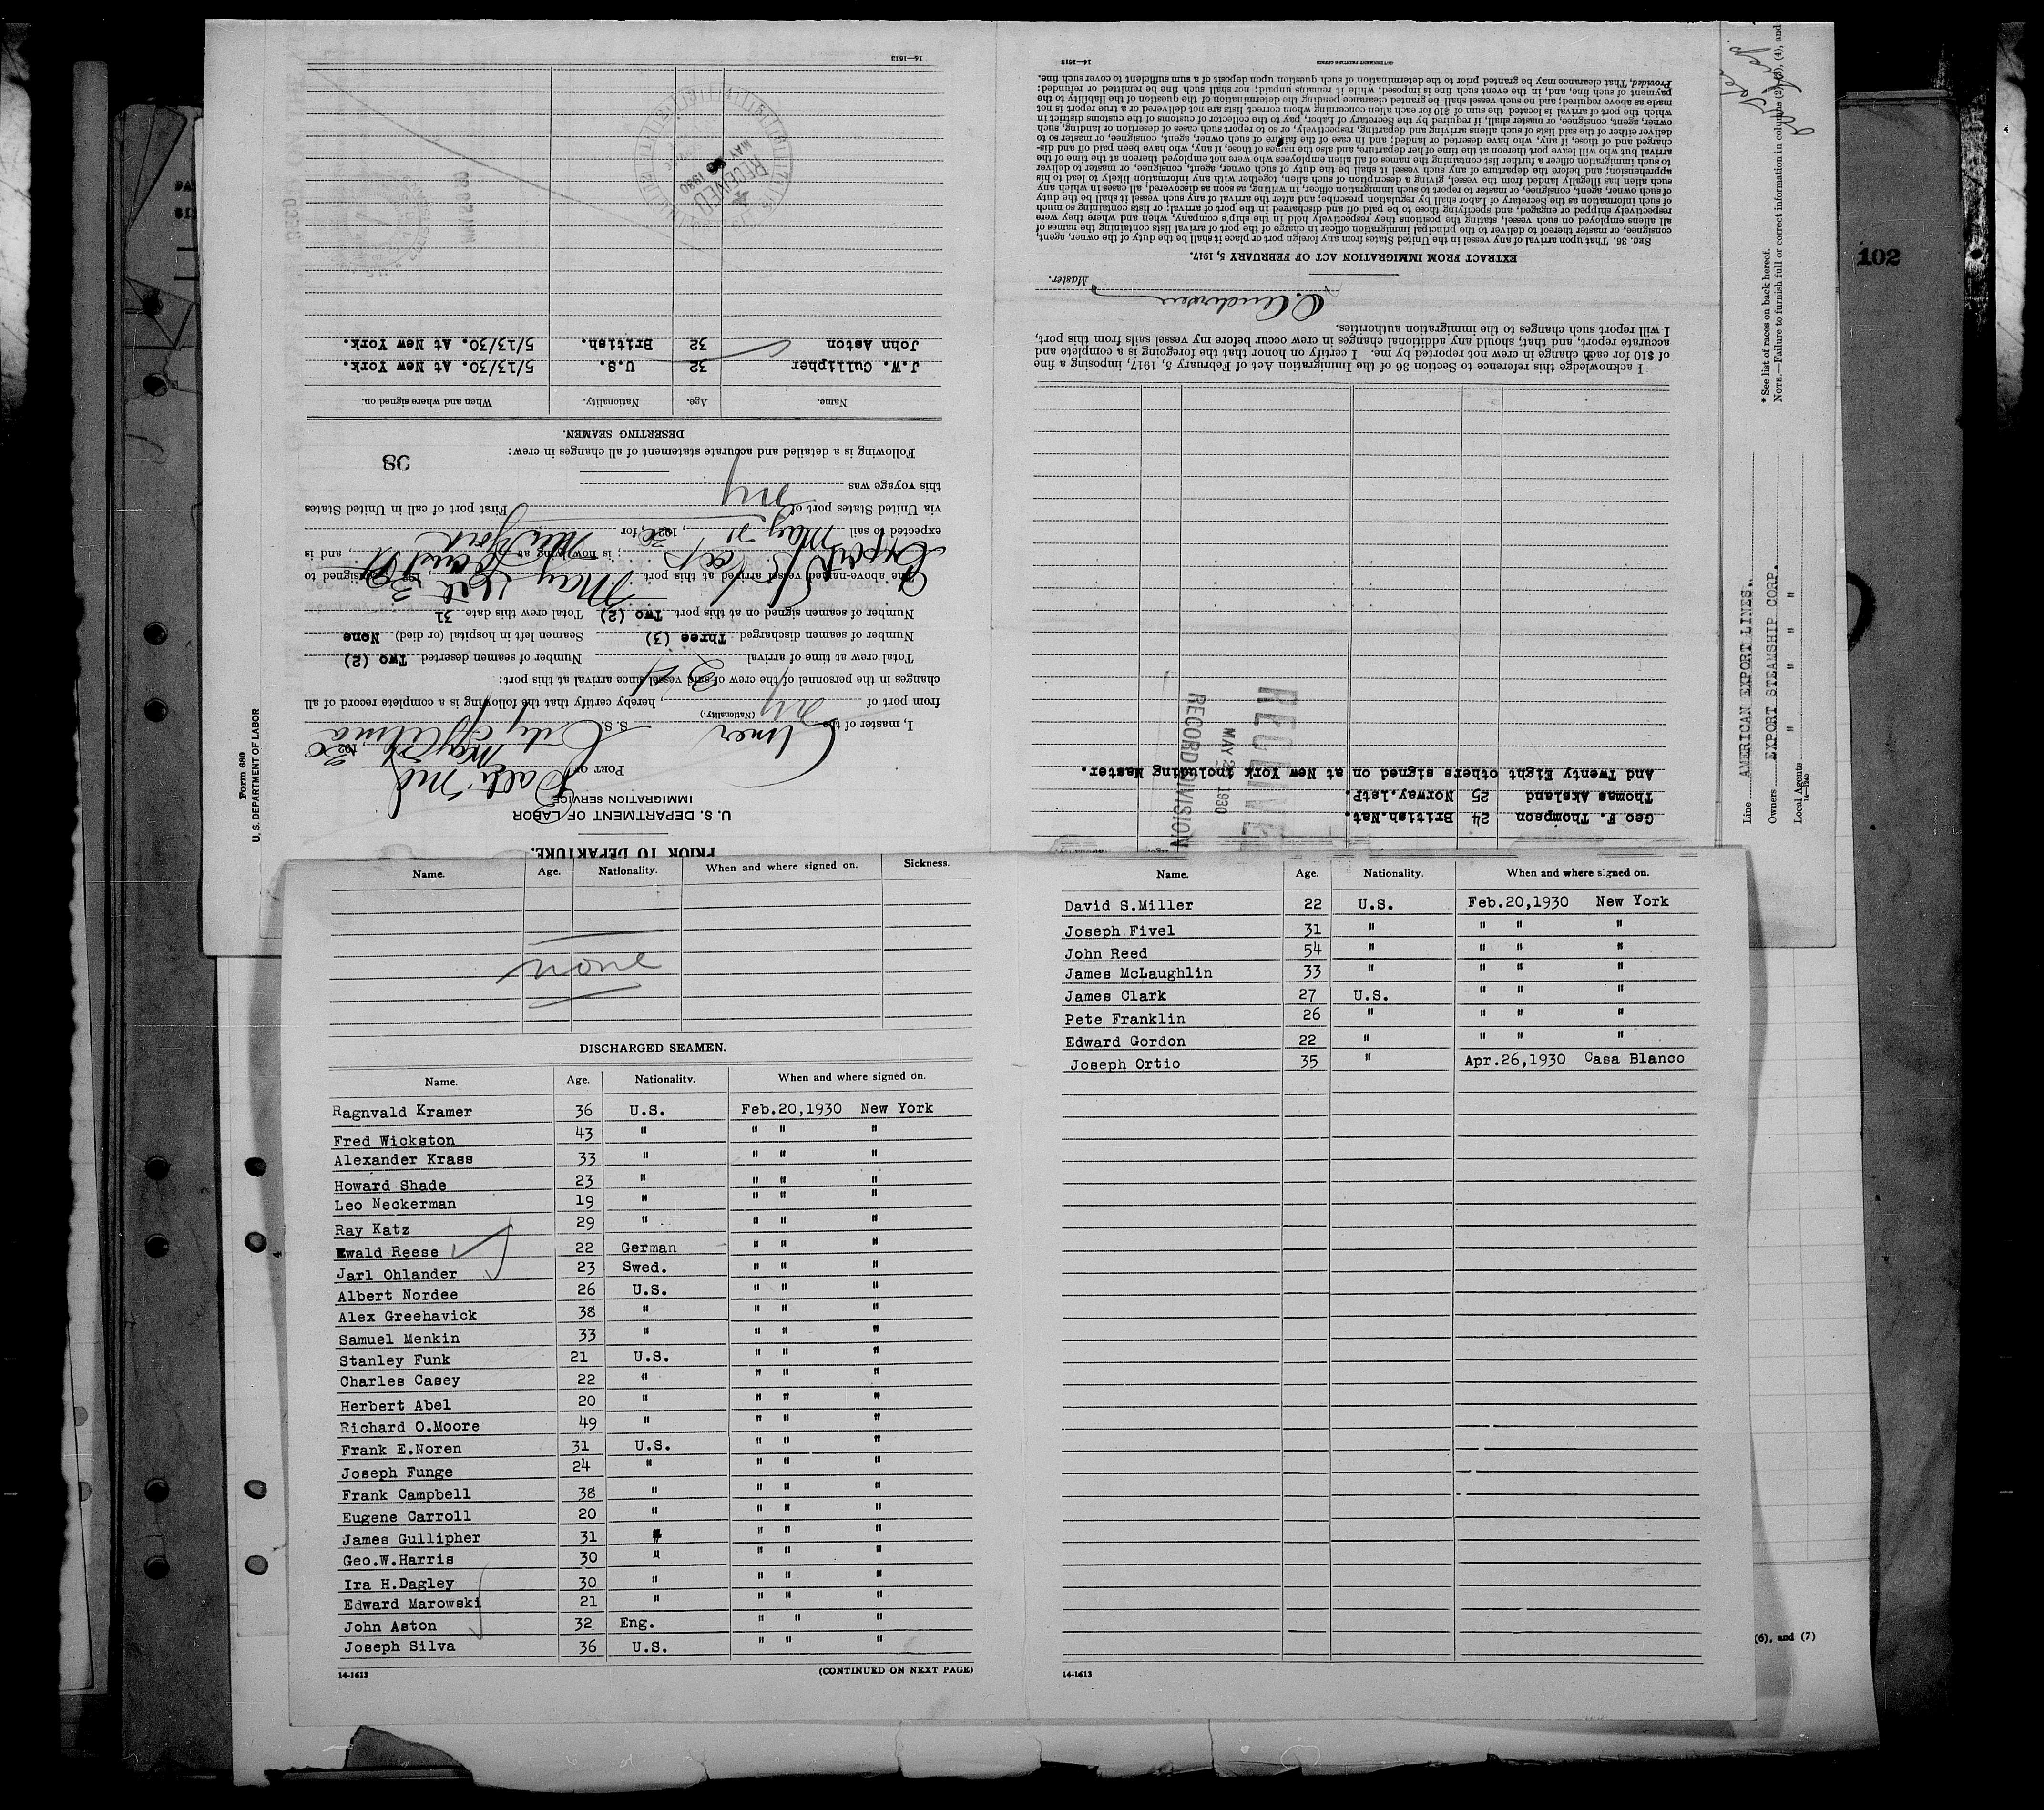 Name. Age. Nationality. When and where signed on. Sickness.
none
DISCHARGED SEAMEN.
Name. Age. Nationality. When and where signed on.
Ragnvald Kramer 36 U.S. Feb.20,1930 New York
Fred Wickston 43 " " " "
Alexander Krass 33 " " " "
Howard Shade 23 " " " "
Leo Neckerman 19 " " " "
Ray Katz 29 " " " "
Ewald Reese 22 German " " "
Jarl Ohlander 23 Swed. " " "
Albert Nordee 26 U.S. " " "
Alex Greehavick 38 " " " "
Samuel Menkin 33 " " " "
Stanley Funk 21 U.S. " " "
Charles Casey 22 " " " "
Herbert Abel 20 " " " "
Richard O.Moore 49 " " " "
Frank E.Noren 31 U.S. " " "
Joseph Funge 24 " " " "
Frank Campbell 38 " " " "
Eugene Carroll 20 " " " "
James Gullipher 31 " " " "
Geo.W.Harris 30 " " " "
Ira H.Dagley 30 " " " "
Edward Marowski 21 " " " "
John Aston 32 Eng. " " "
Joseph Silva 36 U.S. " " "
14-1613 (CONTINUED ON NEXT PAGE)
Name. Age. Nationality. When and where signed on.
David S.Miller 22 U.S. Feb.20,1930 New York
Joseph Fivel 31 " " " "
John Reed 54 " " " "
James McLaughlin 33 " " " "
James Clark 27 U.S. " " "
Pete Franklin 26 " " " "
Edward Gordon 22 " " " "
Joseph Ortio 35 " Apr.26,1930 Casa Blanco
14-1613
(6), and (7)
102
Form 680
U. S. DEPARTMENT OF LABOR
PRIOR TO DEPARTURE.
U. S. DEPARTMENT OF LABOR
IMMIGRATION SERVICE
PORT OF Balti Md May 192 30
I, master of the S. S. City of
(Nationality.)
from port of NY, hereby certify that the following is a complete record of all
changes in the personnel of the crew of said vessel since arrival at this port:
Total crew at time of arrival Number of seamen deserted Two (2)
Number of seamen discharged Three (3) Seamen left in hospital (or died) None
Number of seamen signed on at this port Two (2) Total crew this date 31
The above-named vessel arrived at this port May 30, consigned to
Export S.S. Corp; is now lying at, and is
expected to sail May 21, 192 30, for New York
via United States port of First port of call in United States
this voyage was NY
Following is a detailed and accurate statement of all changes in crew: 98
DESERTING SEAMEN.
Name. Age. Nationality. When and where signed on.
J.W. Cullipher 32 U.S. 5/13/30. At New York.
John Aston 32 British. 5/13/30. At New York.
RECEIVED
MAY 1930
14—1613
Geo F. Thompson 24 British.Nat.
Thomas Akeland 25 Norway.1stP.
And Twenty Eight others signed on at New York including Master.
RECEIVED
MAY 2 1930
RECORD DIVISION
I acknowledge this reference to Section 36 of the Immigration Act of February 5, 1917, imposing a fine
of $10 for each change in crew not reported by me. I certify on honor that the foregoing is a complete and
accurate report, and that, should any additional changes in crew occur before my vessel sails from this port,
I will report such changes to the immigration authorities.
Master.
EXTRACT FROM IMMIGRATION ACT OF FEBRUARY 5, 1917.
SEC. 36. That upon arrival of any vessel in the United States from any foreign port or place it shall be the duty of the owner, agent,
consignee, or master thereof to deliver to the principal immigration officer in charge of the port of arrival lists containing the names of
all aliens employed on such vessel, stating the positions they respectively hold in the ship's company, when and where they were
respectively shipped or engaged, and specifying those to be paid off and discharged in the port of arrival; or lists containing so much
of such information as the Secretary of Labor shall by regulation prescribe; and after the arrival of any such vessel it shall be the duty
of such owner, agent, consignee, or master to report to such immigration officer, in writing, as soon as discovered, all cases in which any
such alien has illegally landed from the vessel, giving a description of such alien, together with any information likely to lead to his
apprehension; and before the departure of any such vessel it shall be the duty of such owner, agent, consignee, or master to deliver
to such immigration officer a further list containing the names of all alien employees who were not employed thereon at the time of the
arrival but who will leave port thereon at the time of her departure, and also the names of those, if any, who have been paid off and dis-
charged and of those, if any, who have deserted or landed; and in case of the failure of such owner, agent, consignee, or master so to
deliver either of the said lists of such aliens arriving and departing, respectively, or so to report such cases of desertion or landing, such
owner, agent, consignee, or master, shall, if required by the Secretary of Labor, pay to the collector of customs of the customs district in
which the port of arrival is located the sum of $10 for each alien concerning whom correct lists are not delivered or a true report is not
made as above required; and no such vessel shall be granted clearance pending the determination of the question of the liability to the
payment of such fine, and, in the event such fine is imposed, while it remains unpaid; nor shall such fine be remitted or refunded:
Provided, That clearance may be granted prior to the determination of such question upon deposit of a sum sufficient to cover such fine.
GOVERNMENT PRINTING OFFICE 14—1613
Line AMERICAN EXPORT LINES.
Owners EXPORT STEAMSHIP CORP.
Local Agents " " " "
* See list of races on back hereof.
NOTE.—Failure to furnish full or correct information in columns (2), (3), (4), and